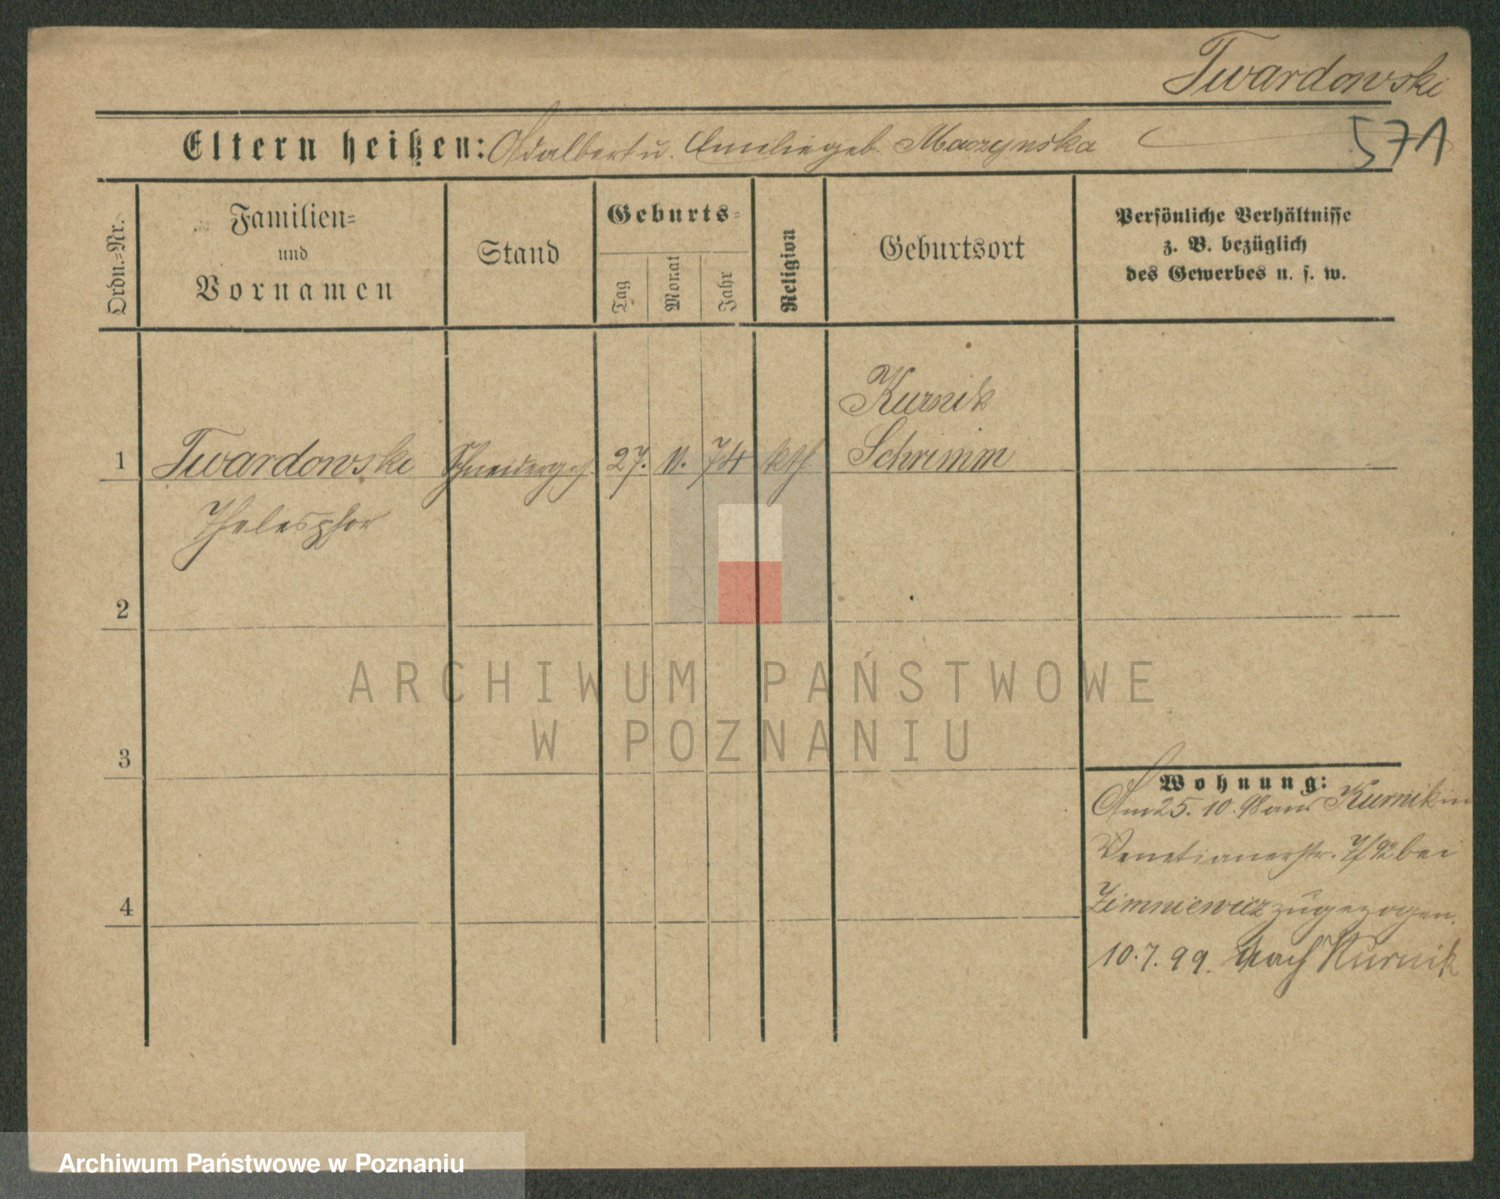 Twardowski
571
Eltern heißen: Adalbert u. Emilie geb. Maczynska
Ordn.-Nr.
Familien-
und
Vornamen
Stand
Geburts-
Tag
Monat
Jahr
Religion
Geburtsort
Persönliche Verhältnisse
z. B. bezüglich
des Gewerbes u. s. w.
Kurnik
1 Twardowski Schneiderges. 27. 74 kth. Schrimm
Thelesphor
2
3
4
ARCHIWUM PAŃSTWOWE
W POZNANIU
Wohnung:
Am 25. 10. 98 aus Kurnik in
Venetianerstr. 7/92 bei
Zimniewicz zugezogen.
10. 7. 99. nach Kurnik
Archiwum Państwowe w Poznaniu